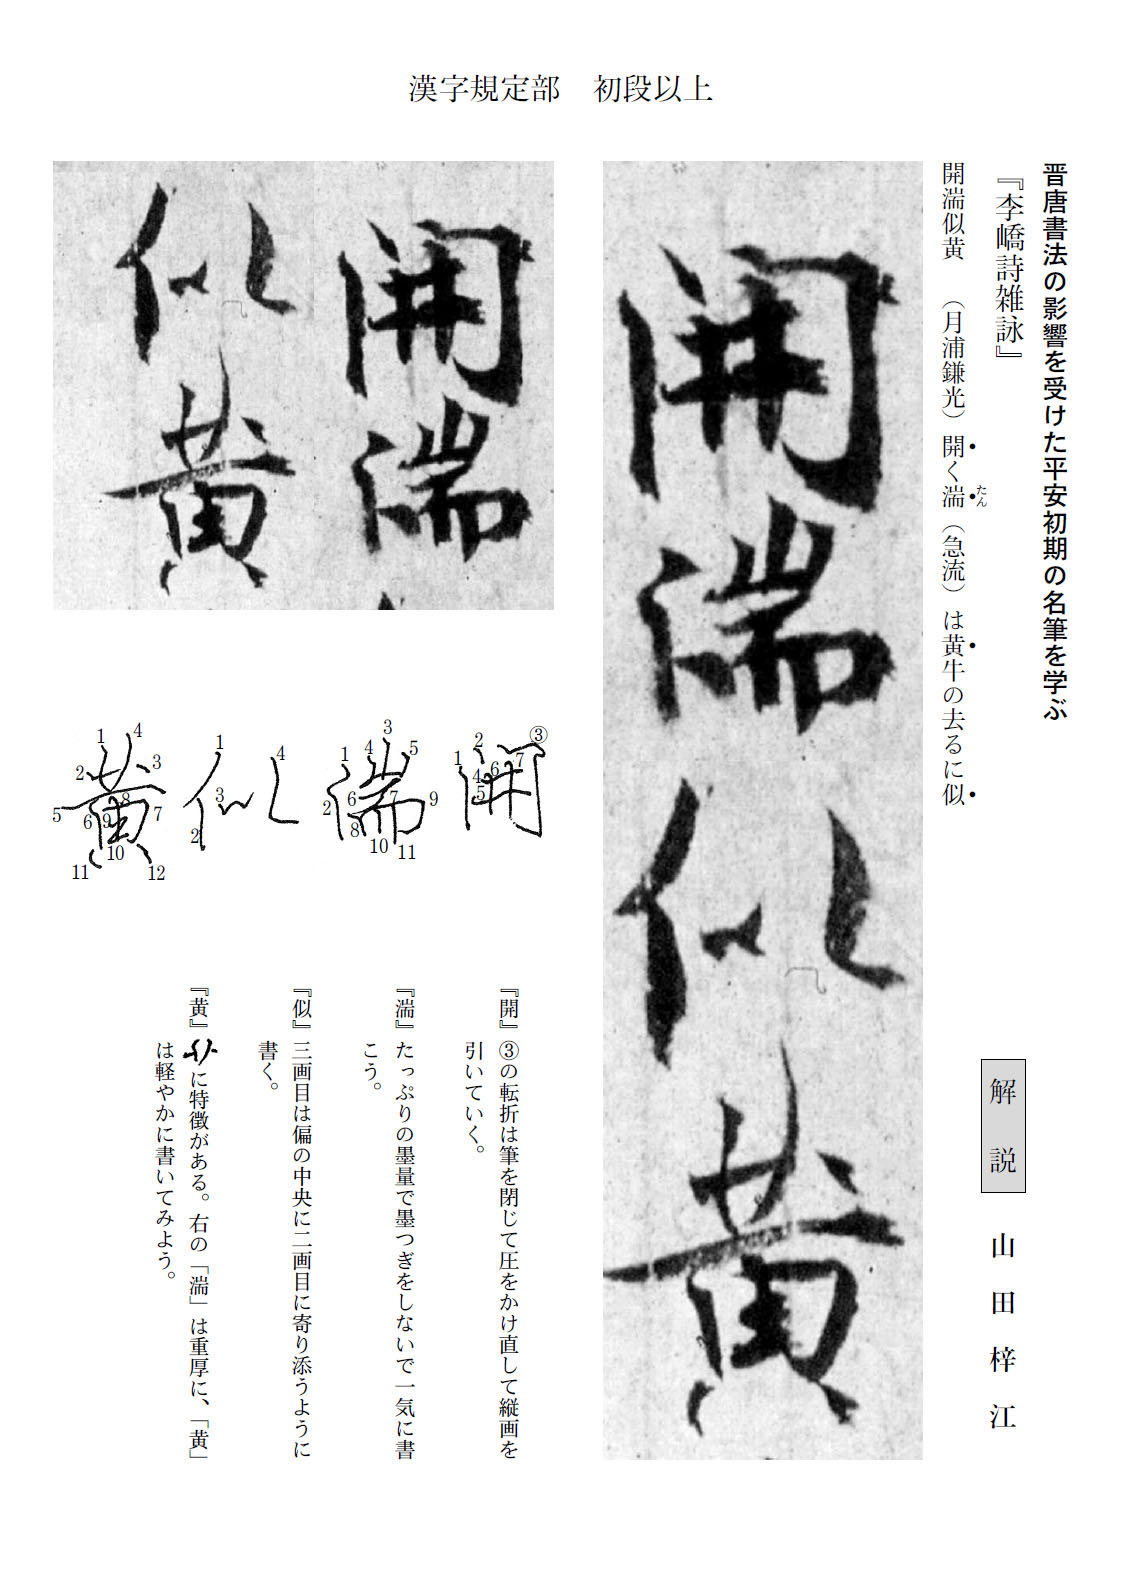 漢字規定部　初段以上
晋唐書法の影響を受けた平安初期の名筆を学ぶ
『李嶠詩雑詠』
解説　山田梓江
開湍似黄　（月浦鎌光）開く湍（急流）は黄牛の去るに似
たん
開湍似黄
開湍
似黄
開 1 2 ③ 4 5 6 7
湍 1 2 3 4 5 6 7 8 9 10 11
似 1 2 3 4
黄 1 2 3 4 5 6 7 8 9 10 11 12
『開』③の転折は筆を閉じて圧をかけ直して縦画を
引いていく。
『湍』たっぷりの墨量で墨つぎをしないで一気に書
こう。
『似』三画目は偏の中央に二画目に寄り添うように
書く。
『黄』に特徴がある。右の「湍」は重厚に、「黄」
は軽やかに書いてみよう。